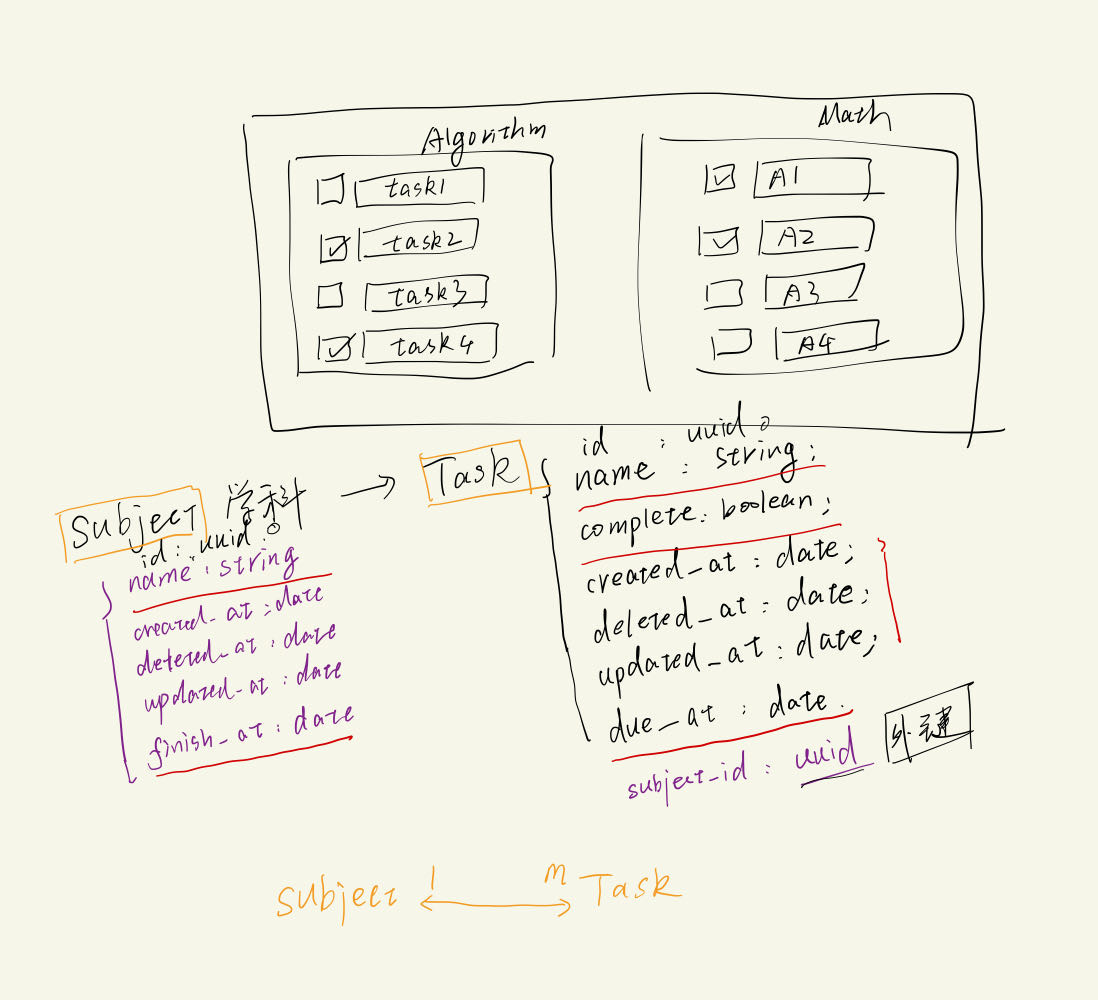 Algorithm
task1
task2
task3
task4
Math
A1
A2
A3
A4
Subject 学科
id : uuid
name : string
created_at : date
deleted_at : date
updated_at : date
finish_at : date
Task
id : uuid
name : string;
complete : boolean;
created_at : date;
deleted_at : date;
updated_at : date;
due_at : date.
subject_id : uuid
外建
subject 1 m Task